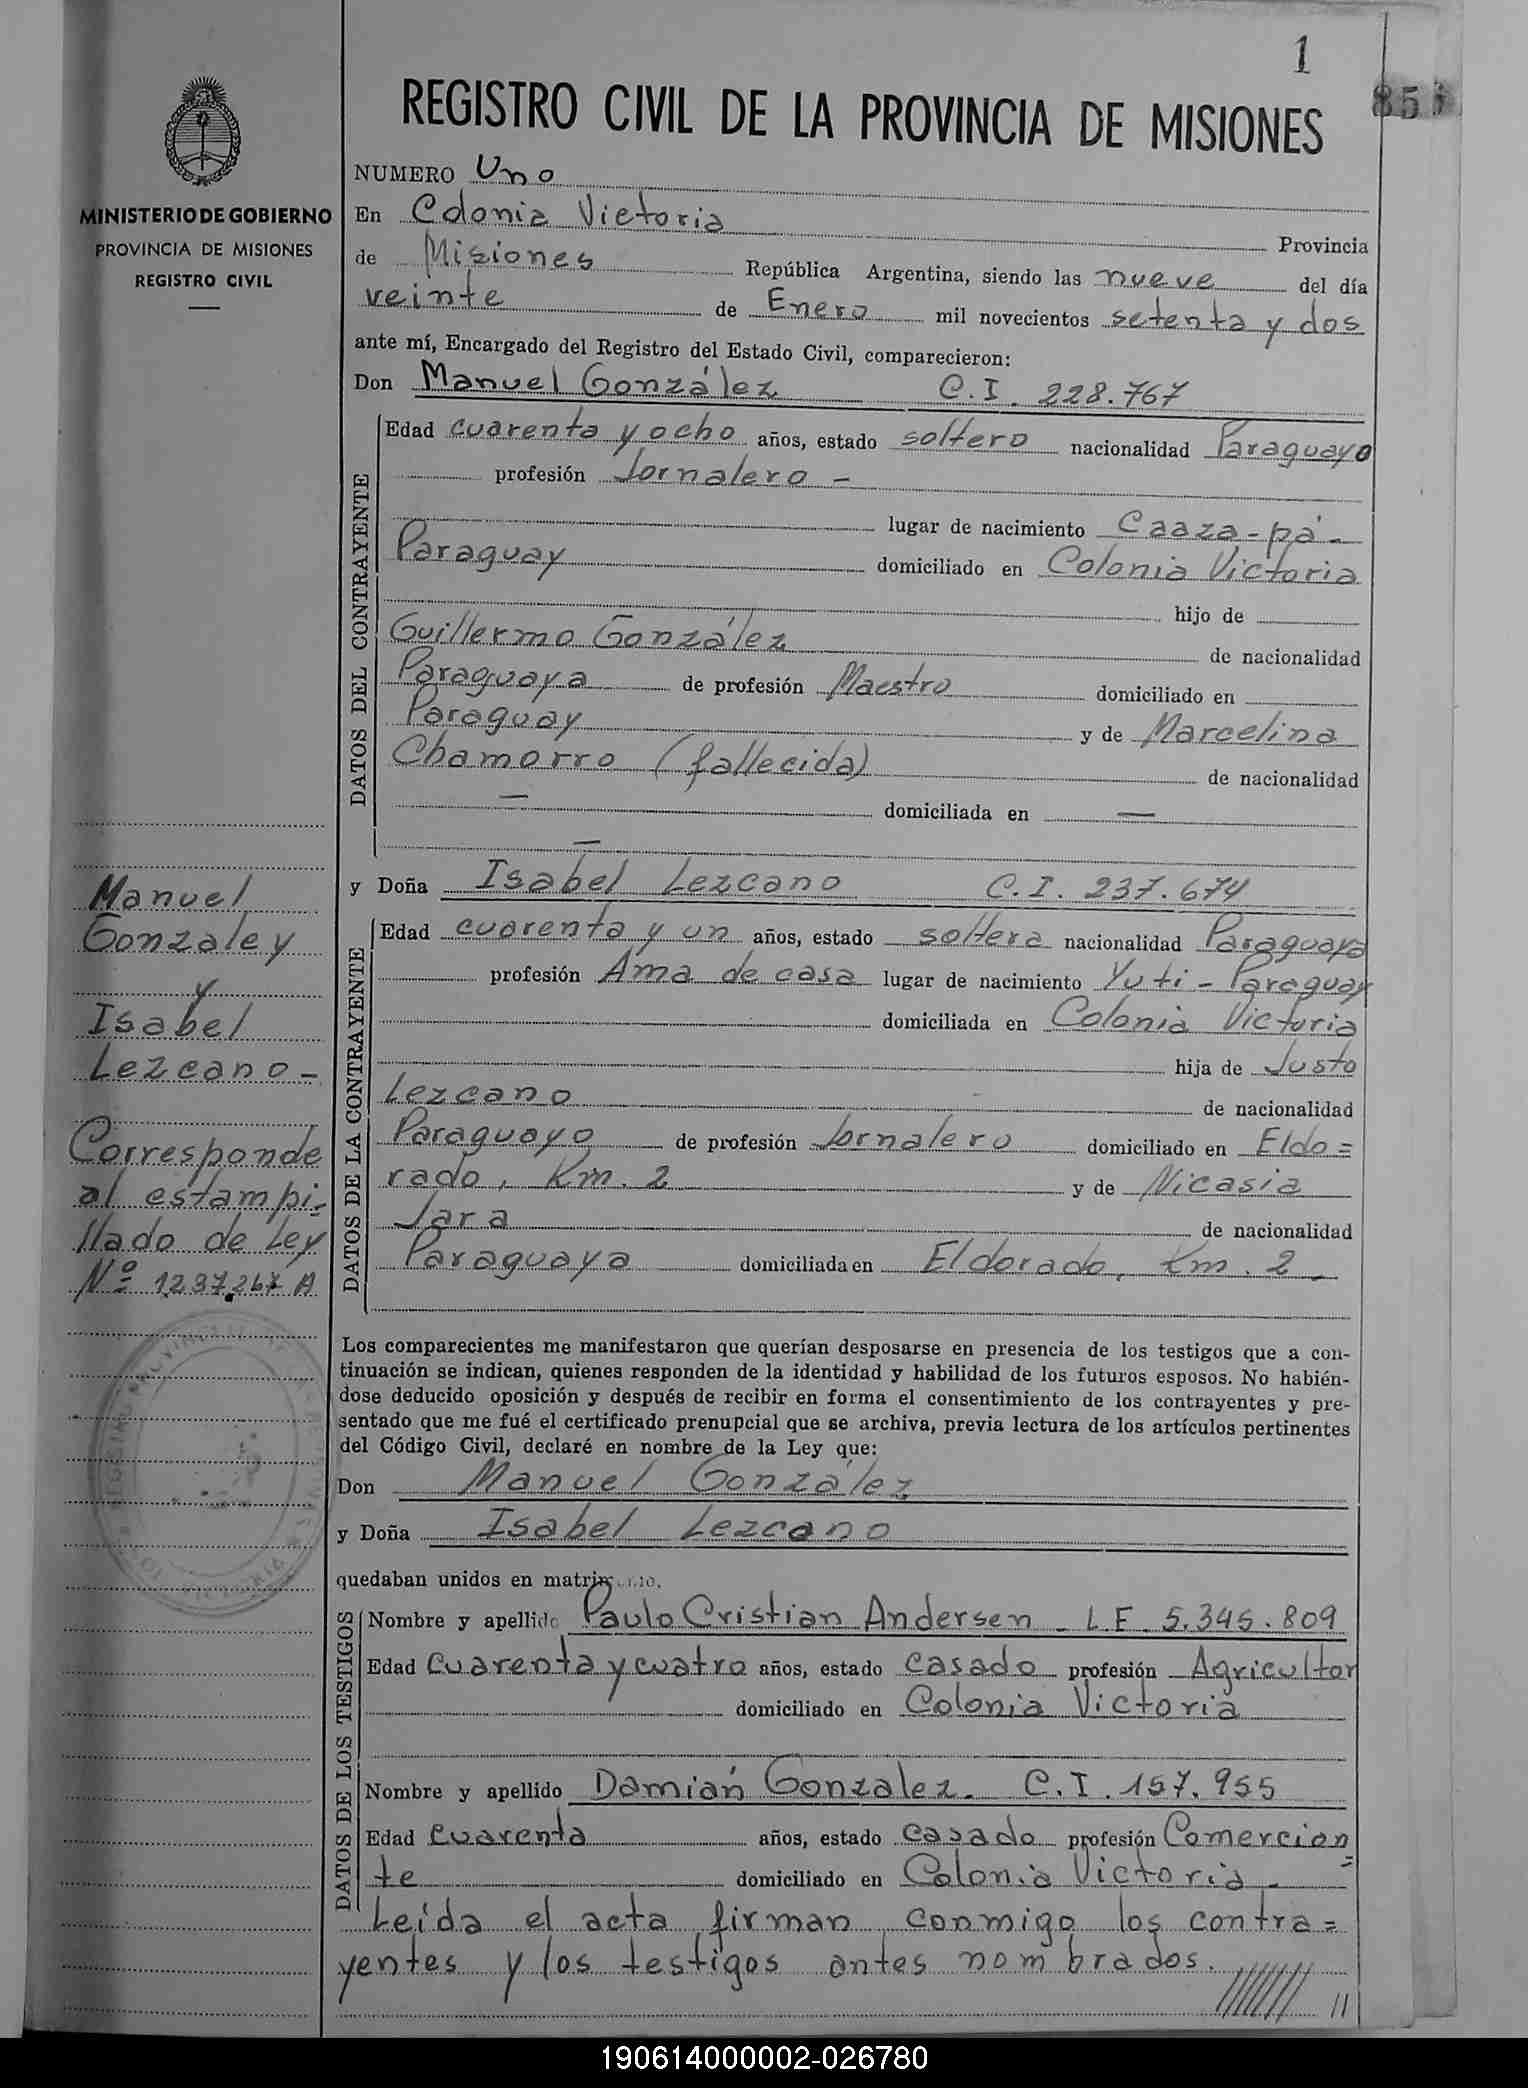 1
85
REGISTRO CIVIL DE LA PROVINCIA DE MISIONES
MINISTERIO DE GOBIERNO
PROVINCIA DE MISIONES
REGISTRO CIVIL
NUMERO Uno
En Colonia Victoria Provincia
de Misiones República Argentina, siendo las nueve del día
veinte de Enero mil novecientos setenta y dos
ante mí, Encargado del Registro del Estado Civil, comparecieron:
Don Manuel González C.I. 228.767
DATOS DEL CONTRAYENTE
Edad cuarenta y ocho años, estado soltero nacionalidad Paraguayo
profesión Jornalero -
lugar de nacimiento Caaza-pá-
Paraguay domiciliado en Colonia Victoria
hijo de
Guillermo González de nacionalidad
Paraguaya de profesión Maestro domiciliado en
Paraguay y de Marcelina
Chamorro (fallecida) de nacionalidad
— domiciliada en —
—
y Doña Isabel Lezcano C.I. 237.674
DATOS DE LA CONTRAYENTE
Edad cuarenta y un años, estado soltera nacionalidad Paraguaya
profesión Ama de casa lugar de nacimiento Yuti - Paraguay
domiciliada en Colonia Victoria
hija de Justo
Lezcano de nacionalidad
Paraguayo de profesión Jornalero domiciliado en Eldo=
rado, Km. 2 y de Nicasia
Jara de nacionalidad
Paraguaya domiciliada en Eldorado, Km. 2 -
Manuel
Gonzaley
y
Isabel
Lezcano -
Corresponde
al estampi=
llado de Ley
Nº 1237.267 A
Los comparecientes me manifestaron que querían desposarse en presencia de los testigos que a con-
tinuación se indican, quienes responden de la identidad y habilidad de los futuros esposos. No habién-
dose deducido oposición y después de recibir en forma el consentimiento de los contrayentes y pre-
sentado que me fué el certificado prenupcial que se archiva, previa lectura de los artículos pertinentes
del Código Civil, declaré en nombre de la Ley que:
Don Manuel González
y Doña Isabel Lezcano
quedaban unidos en matrimonio.
DATOS DE LOS TESTIGOS
Nombre y apellido Paulo Cristian Andersen - L.E. 5.345.809
Edad Cuarenta y cuatro años, estado casado profesión Agricultor
domiciliado en Colonia Victoria
Nombre y apellido Damián Gonzalez. C.I. 157.955
Edad Cuarenta años, estado casado profesión Comercian=
te domiciliado en Colonia Victoria -
Leída el acta firman conmigo los contra=
yentes y los testigos antes nombrados. //////// //
190614000002-026780